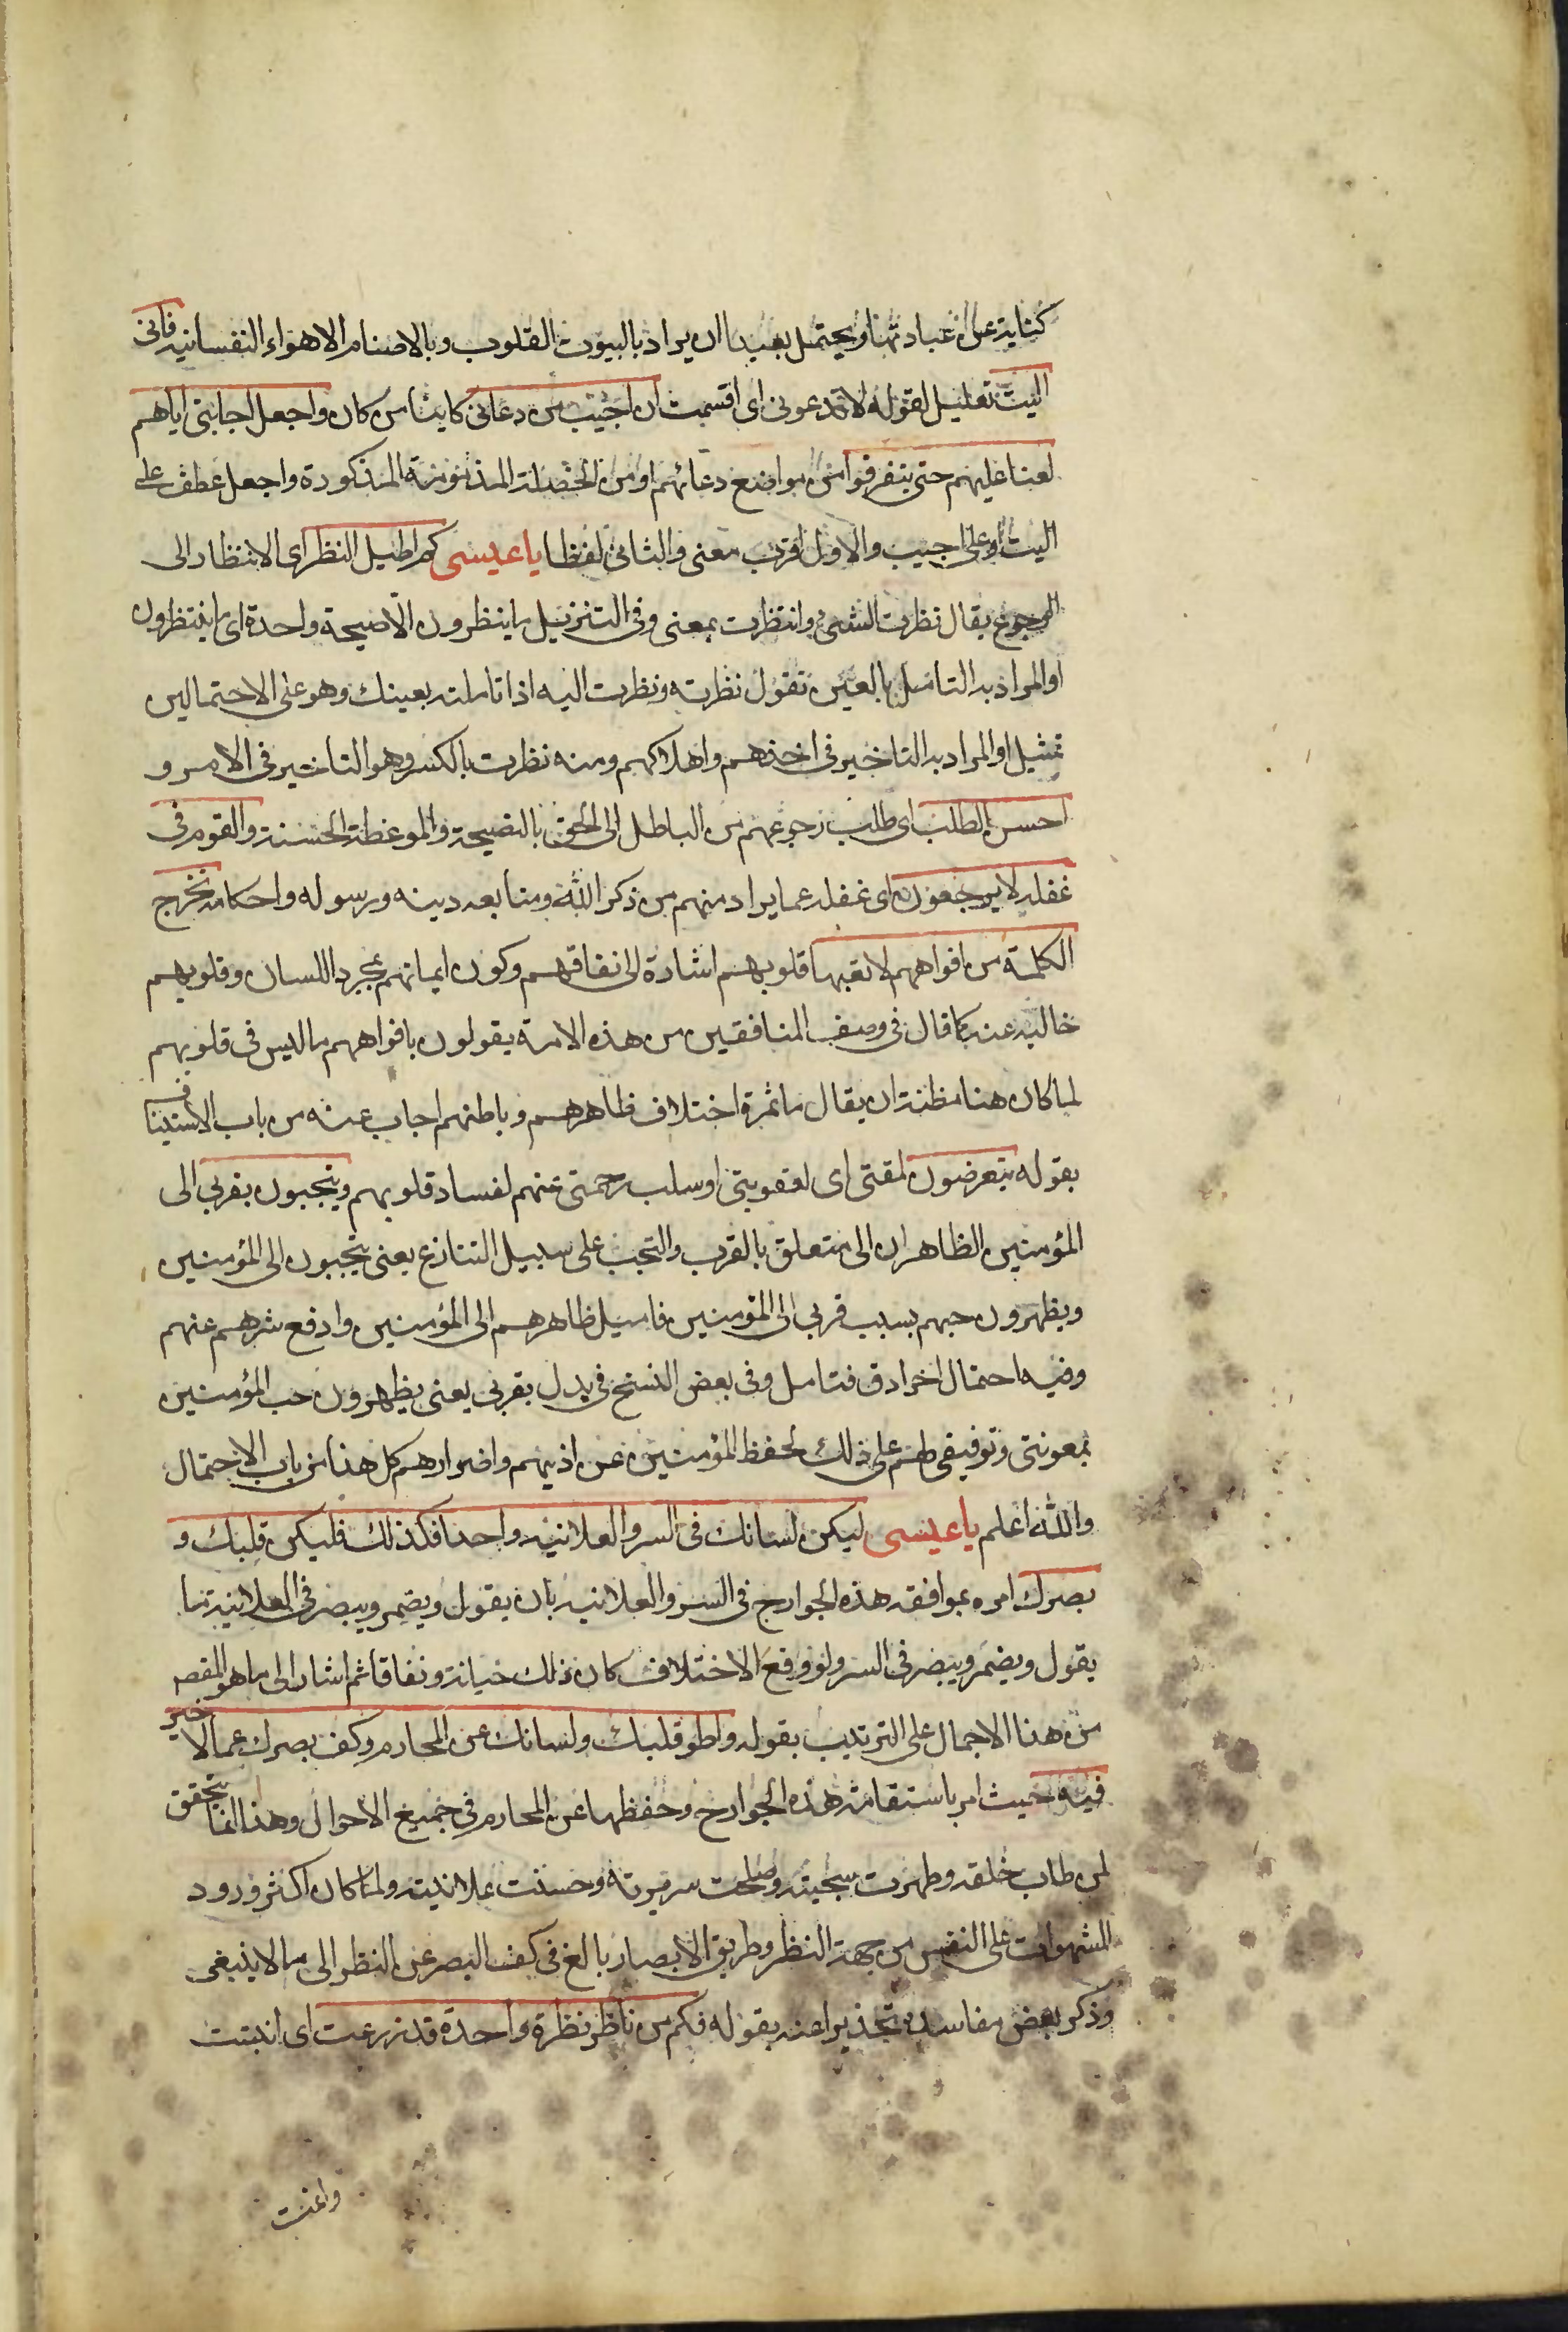 كناية عن عبادتها ويحتمل بعيدا ان يراد بالبيوت القلوب وبالاصنام الاهواء النفسانية فانى
اليت تعليل لقوله لا تدعونى اى اقسمت ان اجيب من دعانى كائنا من كان واجعل اجابتى اياهم
لعنا عليهم حتى يتفرقوا من مواضع دعائهم او من الخصلة المذمومة المذكورة واجعل عطف على
اليت او على اجيب والاول اقرب معنى والثانى لفظا يا عيسى كم اطيل النظر اى الانتظار الى
الرجوع يقال نظرت الشئ وانتظرت بمعنى وفى التنزيل ما ينظرون الا صيحة واحدة اى ما ينتظرون
او المراد به التامل بالعين تقول نظرته ونظرت اليه اذا تاملته بعينك وهو على الاحتمالين
تمثيل او المراد به التاخير فى اخذهم واهلاكهم ومنه نظرت بالكسر وهو التاخير فى الامر و
احسن الطلب اى طلب رجوعهم من الباطل الى الحق بالنصيحة والموعظة الحسنة والقوم فى
غفلة لا يرجعون اى غفلة عما يراد منهم من ذكر الله ومتابعة دينه ورسوله واحكامه تخرج
الكلمة من افواههم لا تعيها قلوبهم اشارة الى نفاقهم وكون ايمانهم بمجرد اللسان وقلوبهم
خالية عنه كما قال فى وصف المنافقين من هذه الامة يقولون بافواههم ما ليس فى قلوبهم
لما كان هنا مظنة ان يقال ما ثمرة اختلاف ظاهرهم وباطنهم اجاب عنه من باب الاستيناف
بقوله يتعرضون لمقتى اى لعقوبتى او سلب رحمتى عنهم لفساد قلوبهم ويتحببون بقربى الى
المؤمنين الظاهر ان الى متعلق بالقرب والتحبب على سبيل التنازع يعنى يتحببون الى المؤمنين
ويظهرون حبهم بسبب قربى الى المؤمنين فاميل ظاهرهم الى المؤمنين وادفع شرهم عنهم
وفيه احتمال اخر ادق فتامل وفى بعض النسخ فى بدل بقربى يعنى يظهرون حب المؤمنين
بمعونتى وتوفيقى لهم على ذلك لحفظ المؤمنين عن اذيهم واضرارهم كل هذا من باب الاحتمال
والله اعلم يا عيسى ليكن لسانك فى السر والعلانية واحدا فكذلك فليكن قلبك و
بصرك امره بموافقة هذه الجوارح فى السر والعلانية بان يقول ويضمر ويبصر فى العلانية ما
يقول ويضمر ويبصر فى السر ولو وقع الاختلاف كان ذلك خيانة ونفاقا ثم اشار الى ما هو المقصد
من هذا الاجمال على الترتيب بقوله واطو قلبك ولسانك عن المحارم وكف بصرك عما لا خير
فيه حيث امر باستقامة هذه الجوارح وحفظها عن المحارم فى جميع الاحوال وهذا انما يتحقق
لمن طاب خلقه وطهرت سجيته وصلحت سريرته وحسنت علانيته ولما كان اكثر ورود
الشهوات على النفس من جهة النظر وطريق الابصار بالغ فى كف البصر عن النظر الى ما لا ينبغى
وذكر بعض مفاسده تحذيرا عنه بقوله فكم من ناظر نظرة واحدة قد زرعت اى انبتت